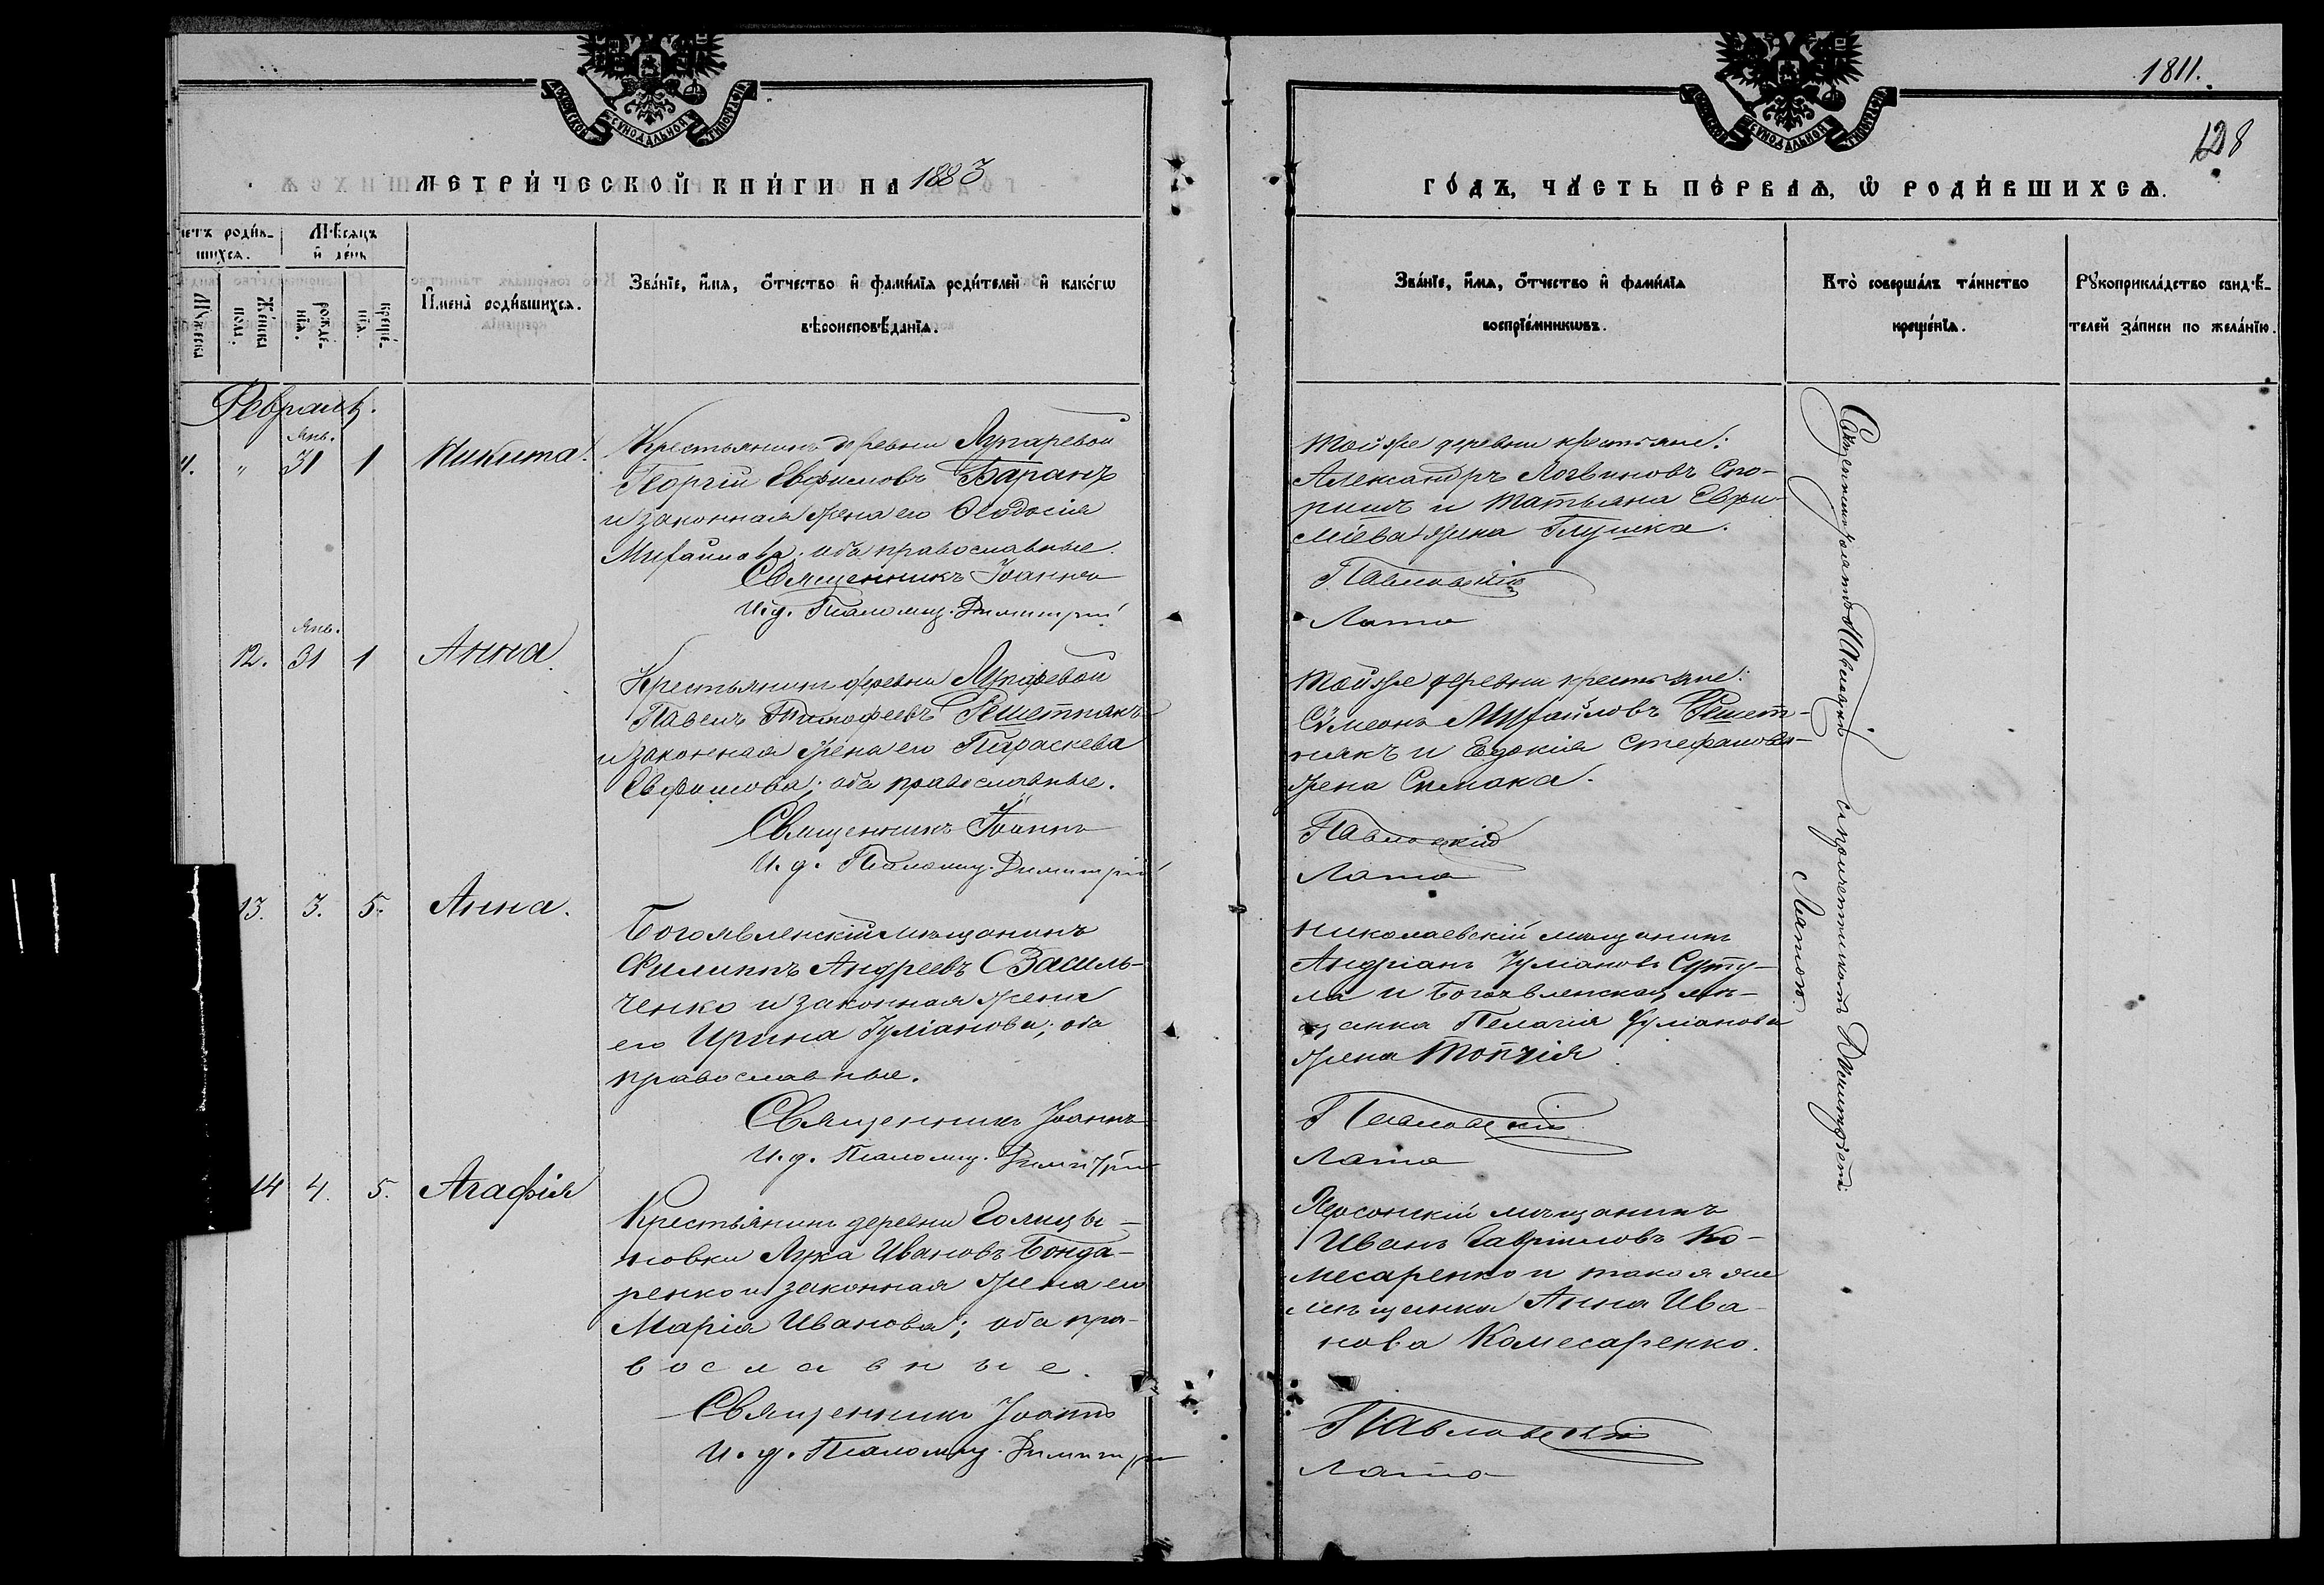 1811.
128
МОСКОВСКОЙ СѴНОДАЛЬНОЙ ТИПОГРАФІИ
МЕТРИ́ЧЕСКОЙ КНИ́ГИ НА 1883
ГО́ДЪ, ЧА́СТЬ ПЕ́РВАѦ, Ѡ҆ РОДИ́ВШИХСѦ.
Счетъ роди́в-
шихсѧ.
Мѣ́сѧцъ
и҆ де́нь
Мꙋ́жеска
Же́нска
пола.
рожде́-
нїѧ.
креще́-
нїѧ.
И҆мена̀ роди́вшихсѧ.
Зва́нїе, и҆́мѧ, ѻ҆́тчество и҆ фами́лїѧ роди́телей и҆ како́гѡ
вѣроисповѣ́данїѧ.
Зва́нїе, и҆́мѧ, ѻ҆́тчество и҆ фами́лїѧ
воспрїе́мникѡвъ.
Кто̀ соверша́лъ та́инство
креще́нїѧ.
Рꙋкоприкла́дство свидѣ́-
телей за́писи по жела́нїю.
Февраль.
Янв.
31 1 Никита.
Крестьянинъ деревни Лупаревой
Георгій Евфимовъ Баранъ
и законная жена его Ѳеодосія
Михайлова; оба православные.
Священникъ Іоаннъ
И.д. Псаломщ. Димитрій
Тойже деревни крестьяне:
Александръ Логвиновъ Спо-
ришъ и Татьяна Евфи-
міева жена Глушка.
Павловскій
Лапа
Янв.
12. 31 1 Анна.
Крестьянинъ деревни Лупаревой
Павелъ Тимофеевъ Решетнякъ
и законная жена его Параскева
Евфимова; оба православные.
Священникъ Іоаннъ
И.д. Псаломщ. Димитрій
Тойже деревни крестьяне:
Сѵмеонъ Михайловъ Решет-
някъ и Евдокія Стефанова
жена Симака.
Павловскій
Лапа
13. 3. 5. Анна.
Богоявленскій мѣщанинъ
Филиппъ Андреевъ Василь-
ченко и законная жена
его Ирина Іуліанова; оба
православные.
Священникъ Іоаннъ
И.д. Псаломщ. Димитрій
Николаевскій мѣщанинъ
Андріанъ Іуліановъ Сурту-
ла и Богоявленская мѣ-
щанка Пелагія Іуліанова
жена Топчія.
Павловскій
Лапа
14 4. 5. Агафія
Крестьянинъ деревни Голицы-
новки Лука Ивановъ Бонда-
ренко и законная жена его
Марія Иванова; оба пра-
вославные.
Священникъ Іоаннъ
И.д. Псаломщ. Димитрій
Херсонскій мѣщанинъ
Иванъ Гавриловъ Ко-
месаренко и такая же
мѣщанка Анна Ива-
нова Комесаренко.
Павловскій
Лапа
Священникъ Іоаннъ Павловскій съ псаломщикомъ Димитріемъ
Лапою.